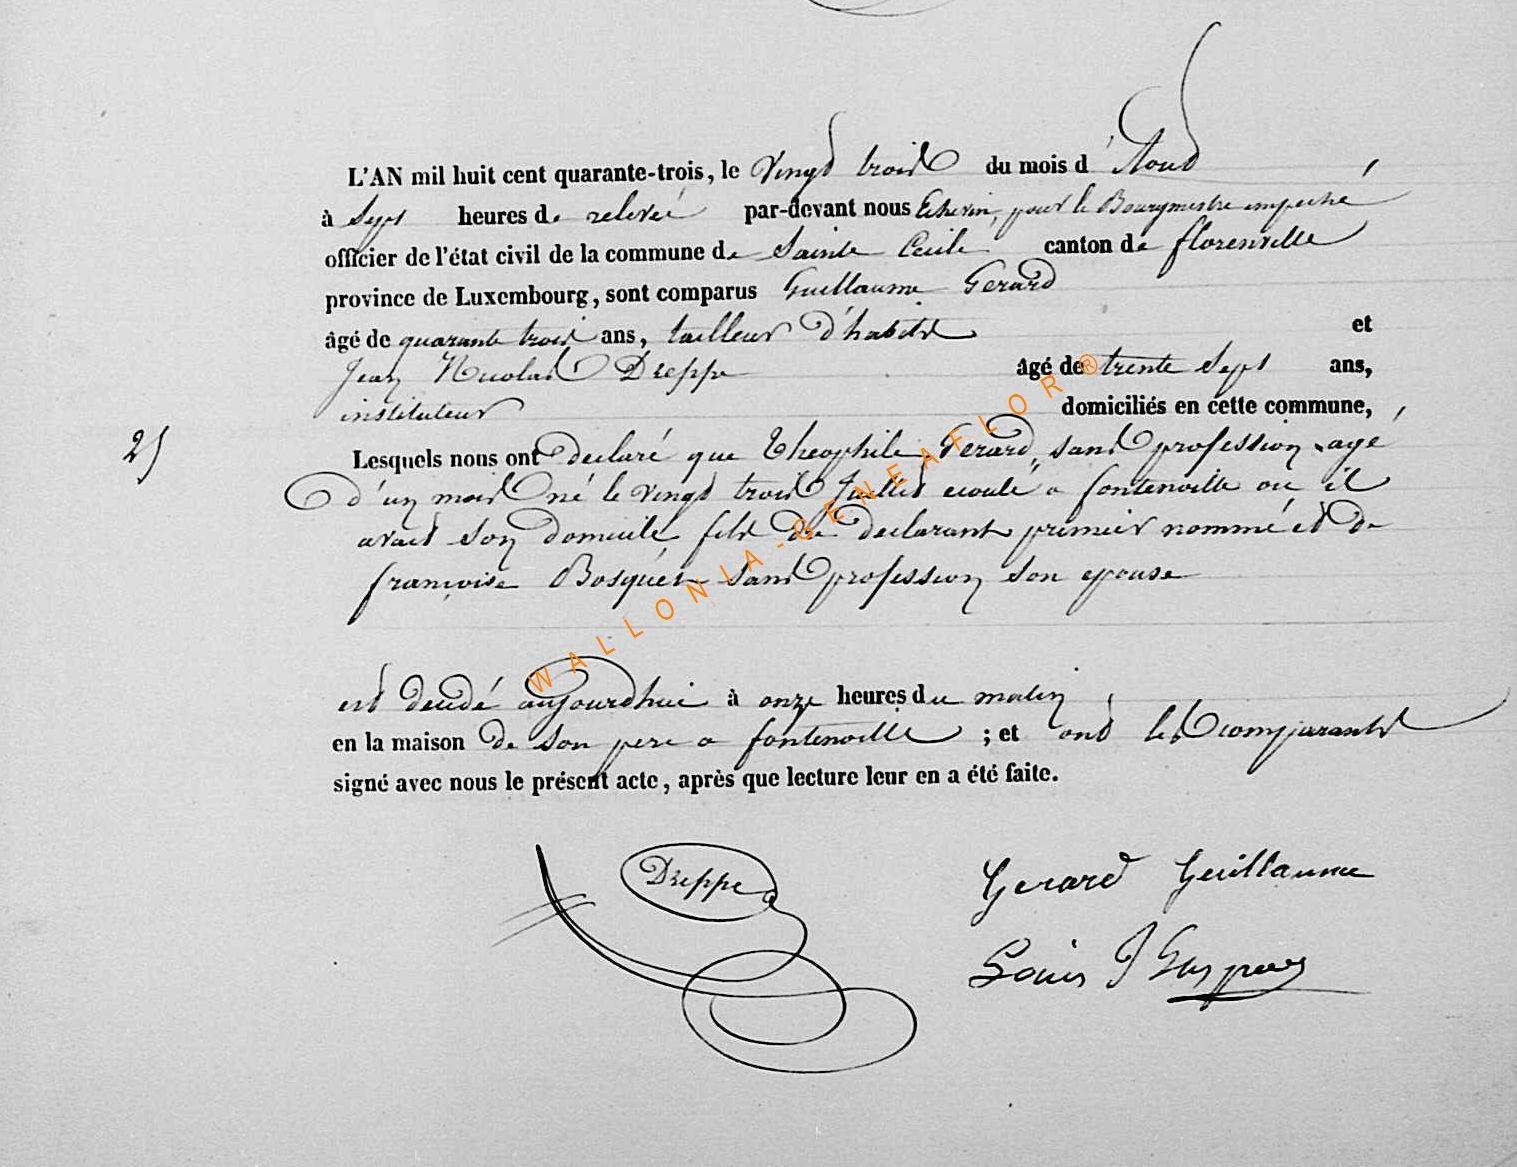 L'AN mil huit cent quarante-trois, le vingt trois du mois d'Aout
à sept heures de relevée par-devant nous Echevin, pour le Bourgmestre empeché
officier de l'état civil de la commune de Sainte Cecile canton de florenville
province de Luxembourg, sont comparus Guillaume Gerard
âgé de quarante trois ans, tailleur d'habits et
Jean Nicolas Dreppe âgé de trente sept ans,
instituteur domiciliés en cette commune,
25
Lesquels nous ont declaré que Theophile Gerard, sans profession, agé
d'un mois né le vingt trois Juillet ecoulé a fontenoille ou il
avait son domicile, fils du declarant premier nommé et de
françoise Bosquet sans profession son epouse
est decedé aujourdhui à onze heures du matin
en la maison de son pere a fontenoille ; et ont les comparants
signé avec nous le présent acte, après que lecture leur en a été faite.
Dreppe Gerard Guillaume
Louis J
WALLONIA-GENEAFLOR®